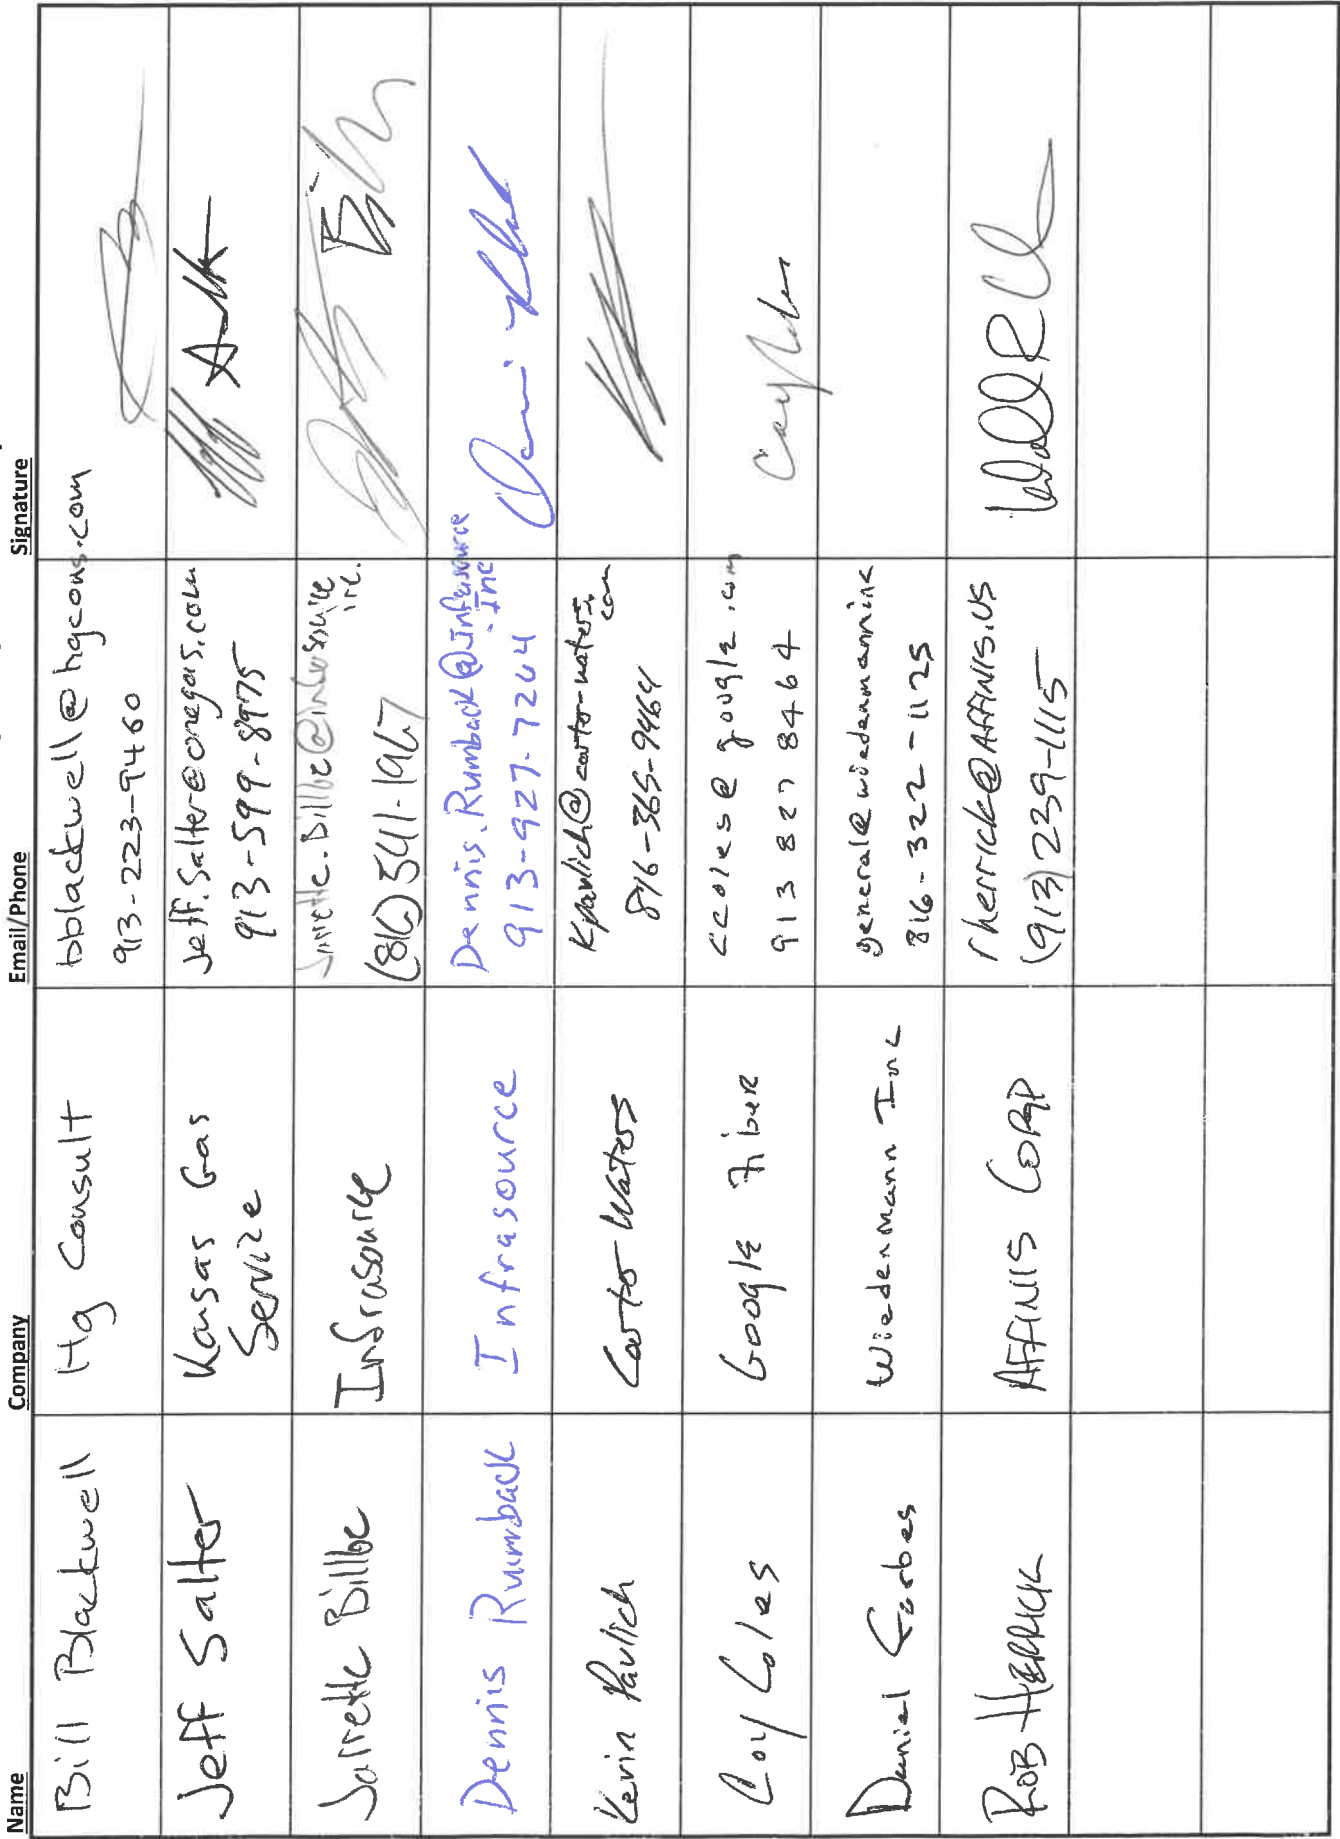 Name Company Email/Phone Signature
Bill Blackwell Hg Consult bblackwell@hgcons.com
913-223-9460
Jeff Salter Kansas Gas Jeff.Salter@onegas.com
Service 913-599-8975
Jarrette Billbe Infrasource Jarrette.Billbe@infrasource
inc.
(816) 541-1967
Dennis Rumback Infrasource Dennis.Rumback@Infrasource
.Inc
913-927-7204
Kevin Pavlich Carter-Waters Kpavlich@carter-waters.
com
816-365-9464
Coy Coles Google Fiber ccoles@google.com
913 827 8464
Daniel Forbes Wiedenmann Inc general@wiedenmanninc
816-322-1125
ROB HERRICK AFFINIS CORP rherrick@AFFINIS.US
(913) 239-1115